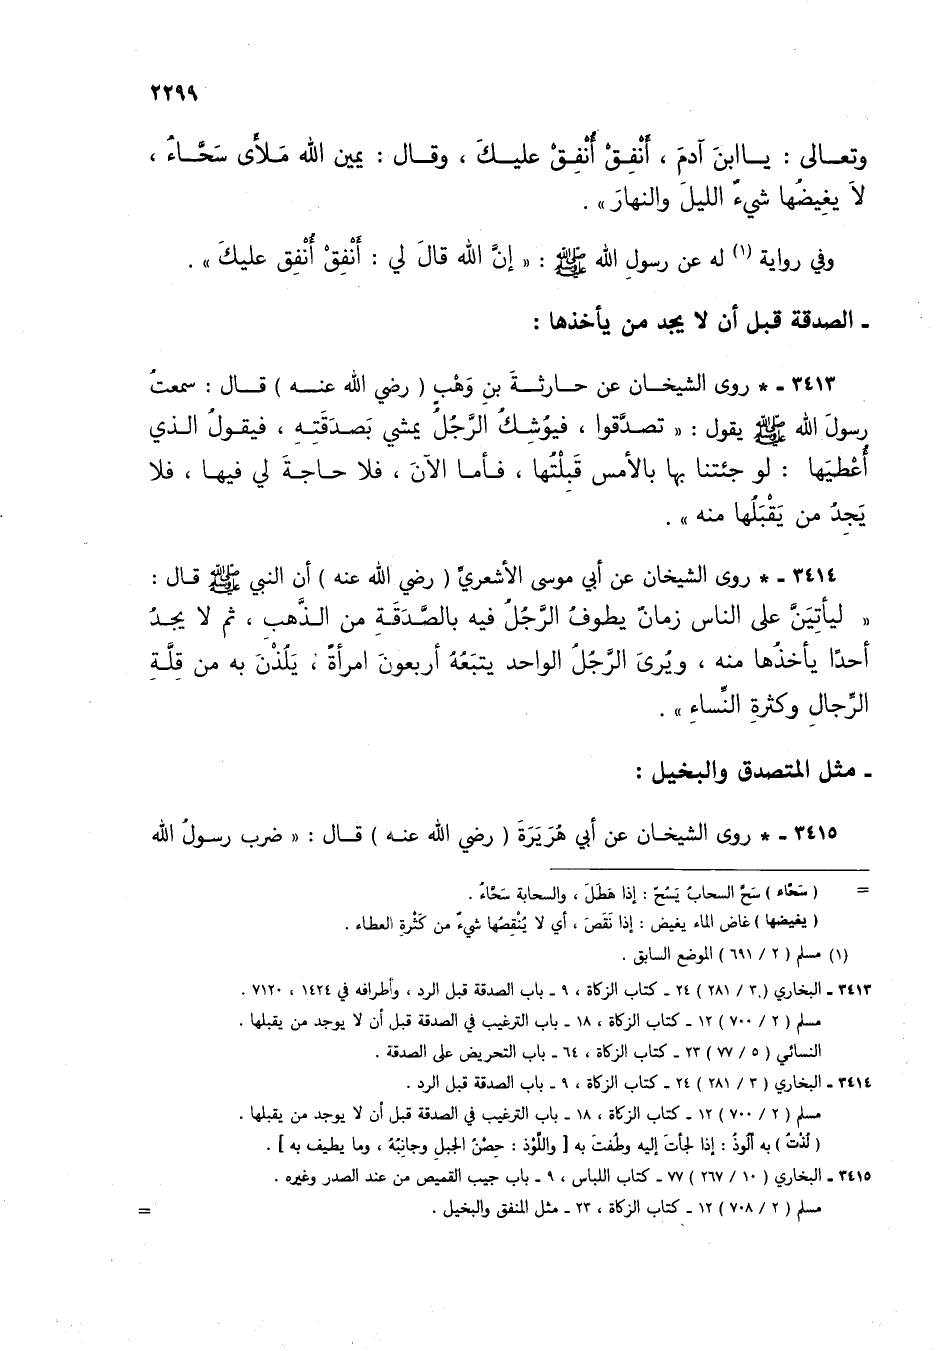 ٢٢٩٩
وتعـالى : يـاابنَ آدمَ ، أَنْفِـقْ أُنْفِـقْ عليـكَ ، وقـال : يمين الله مَـلأَى سَحَّـاءُ ،
لاَ يغِيضُها شيءٌ الليلَ والنهارَ » .
وفي رواية (١) له عن رسولِ الله ﷺ : « إنَّ الله قالَ لي : أَنْفِقْ أُنْفِق عليكَ » .
ـ الصدقة قبل أن لا يجد من يأخذها :
٣٤١٣ ـ * روى الشيخـان عن حـارثـةَ بنِ وَهْبٍ ( رضي الله عنـه ) قـال : سمعتُ
رسولَ الله ﷺ يقول : « تصـدَّقوا ، فيوُشِـكُ الرَّجُلُ يمشي بَصـدَقَتِـهِ ، فيقـولُ الـذي
أُعْطيَها : لو جئتنا بها بالأمس قَبِلْتُها ، فـأمـا الآنَ ، فلا حـاجـةَ لي فيهـا ، فلا
يَجِدُ من يَقْبَلُها منه » .
٣٤١٤ ـ * روى الشيخان عن أبي موسى الأشعريِّ ( رضي الله عنه ) أن النبي ﷺ قـال :
« ليأتِيَنَّ على الناس زمانٌ يطوفُ الرَّجُلُ فيه بالصَّدَقَـةِ من الـذَّهبِ ، ثم لا يجـدُ
أحدًا يأخذُها منه ، ويُرىَ الرَّجُلُ الواحد يتبَعُهُ أربعونَ امرأةً ، يَلُذْنَ به من قِلَّـةِ
الرِّجالِ وكثرةِ النِّساءِ » .
ـ مثل المتصدق والبخيل :
٣٤١٥ ـ * روى الشيخـان عن أبي هُرَيَرَةَ ( رضي الله عنـه ) قـال : « ضرب رسولُ الله
= ( سَحَّاء ) سَحَّ السحابُ يَسُحّ : إذا هَطَلَ ، والسحابة سَحَّاءُ .
( يغيضها ) غاض الماء يغيض : إذا نَقَصَ ، أي لا يُنْقِصُها شيءٌ من كَثْرةِ العطاء .
(١) مسلم ( ٢ / ٦٩١ ) الموضع السابق .
٣٤١٣ ـ البخاري ( ٣ / ٢٨١ ) ٢٤ ـ كتاب الزكاة ، ٩ ـ باب الصدقة قبل الرد ، وأطرافه في ١٤٢٤ ، ٧١٢٠ .
مسلم ( ٢ / ٧٠٠ ) ١٢ ـ كتاب الزكاة ، ١٨ ـ باب الترغيب في الصدقة قبل أن لا يوجد من يقبلها .
النسائي ( ٥ / ٧٧ ) ٢٣ ـ كتاب الزكاة ، ٦٤ ـ باب التحريض على الصدقة .
٣٤١٤ ـ البخاري ( ٣ / ٢٨١ ) ٢٤ ـ كتاب الزكاة ، ٩ ـ باب الصدقة قبل الرد .
مسلم ( ٢ / ٧٠٠ ) ١٢ ـ كتاب الزكاة ، ١٨ ـ باب الترغيب في الصدقة قبل أن لا يوجد من يقبلها .
( لُذتُ ) به ألُوذُ : إذا لجأتَ إليه وطُفتَ به [ واللَّوْذ : حِصْنُ الجبلِ وجانِبُهُ ، وما يطيف به ] .
٣٤١٥ ـ البخاري ( ١٠ / ٢٦٧ ) ٧٧ ـ كتاب اللباس ، ٩ ـ باب جيب القميص من عند الصدر وغيره .
مسلم ( ٢ / ٧٠٨ ) ١٢ ـ كتاب الزكاة ، ٢٣ ـ مثل المنفق والبخيل . =